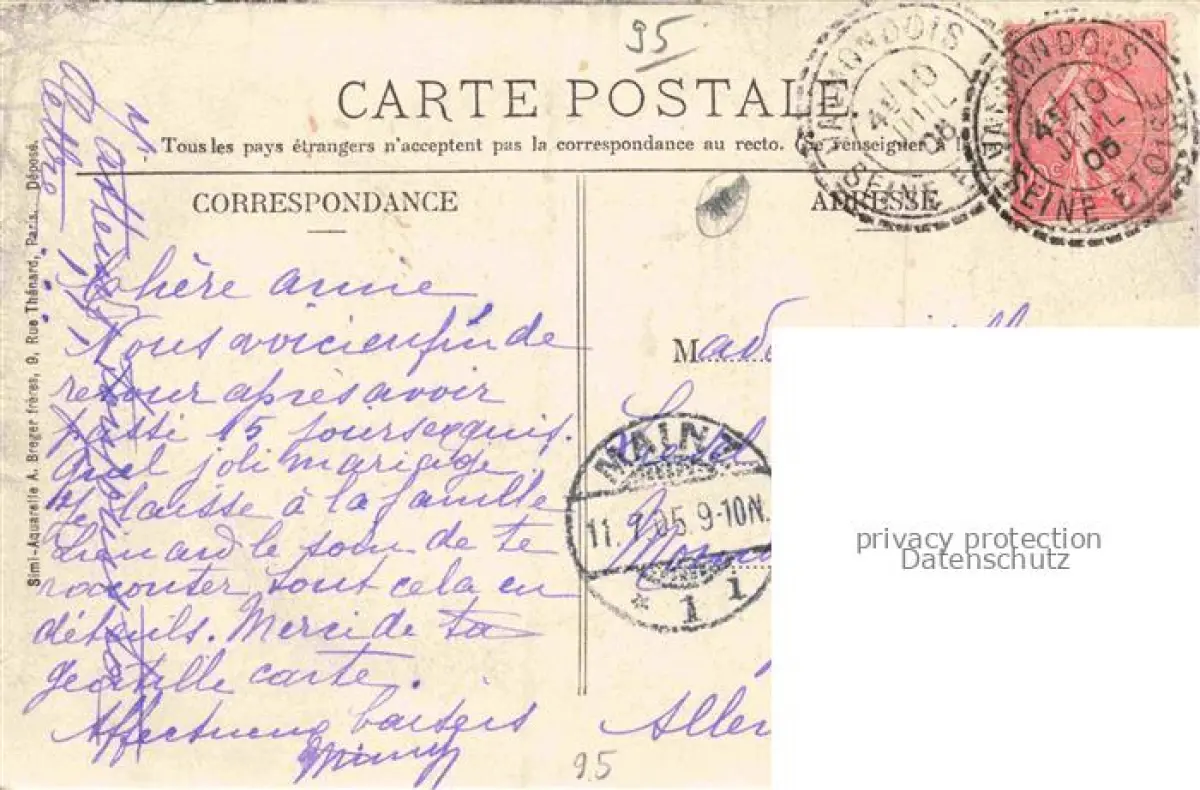 95
CARTE POSTALE
Tous les pays étrangers n'acceptent pas la correspondance au recto. (Se renseigner à l
CORRESPONDANCE
ADRESSE
VALMONDOIS
SEINE
10
JUIL
05
VALMONDOIS
SEINE ET OISE
10
JUIL
05
J'attends
lettre
Simi-Aquarelle A. Breger frères, 9, Rue Thénard, Paris. Déposé.
Chère anne
Nous voici enfin de
retour après avoir
passé 15 jours exquis.
Quel joli mariage
Je laisse à la famille
Lienard le soin de te
raconter tout cela en
détails. Merci de ta
gentille carte.
Affectueux baisers
Mimy
Mad
MAINZ
11.7.05.9-10N.
* 1 i
Allem
95
privacy protection
Datenschutz